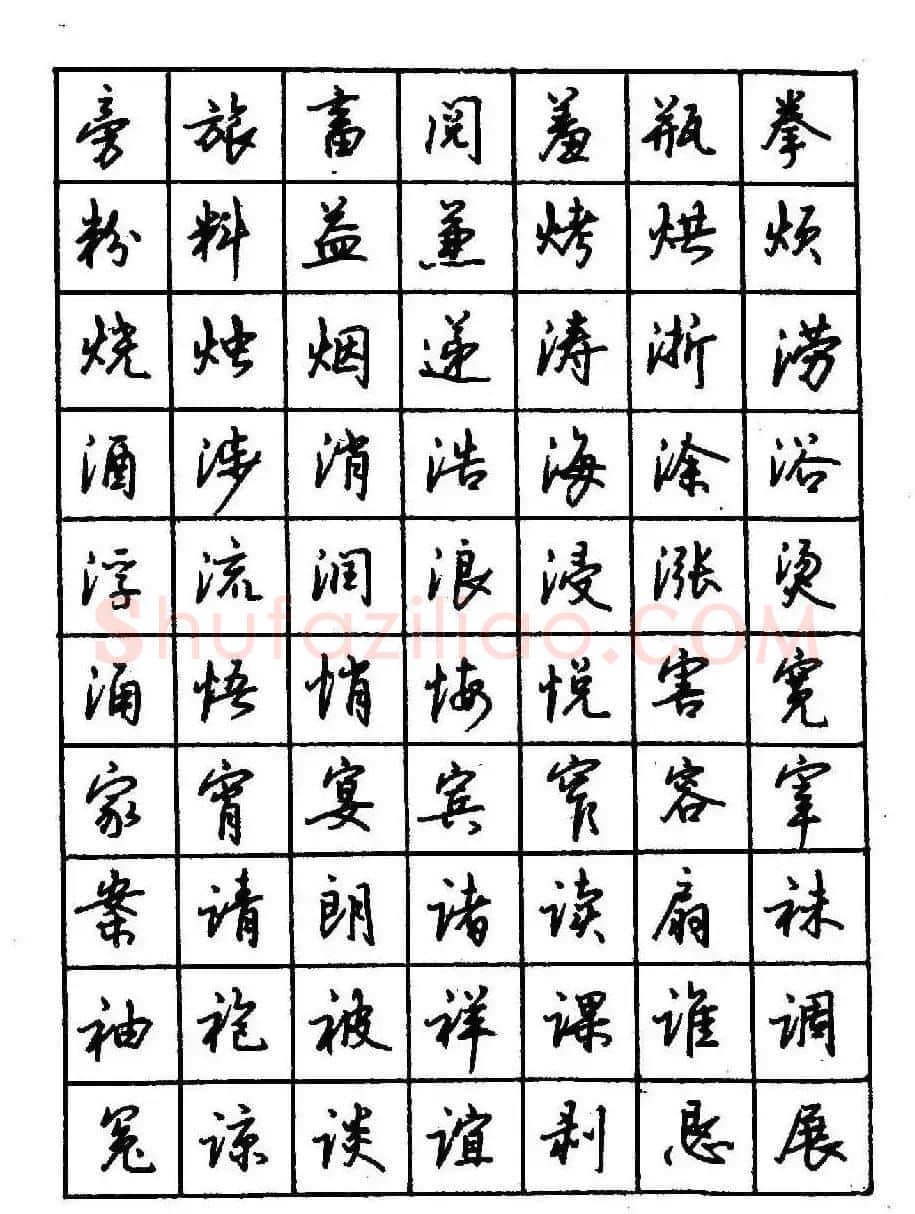 旁旅畜阅羞瓶拳
粉料益兼烤烘烦
烧烛烟递涛浙涝
酒涉消浩海涂浴
浮流润浪浸涨烫
shufaziliao.COM
涌悟悄悔悦害宽
家宵宴宾窄容宰
案请朗诸读扇袜
袖袍被祥课谁调
冤谅谈谊剥恳展